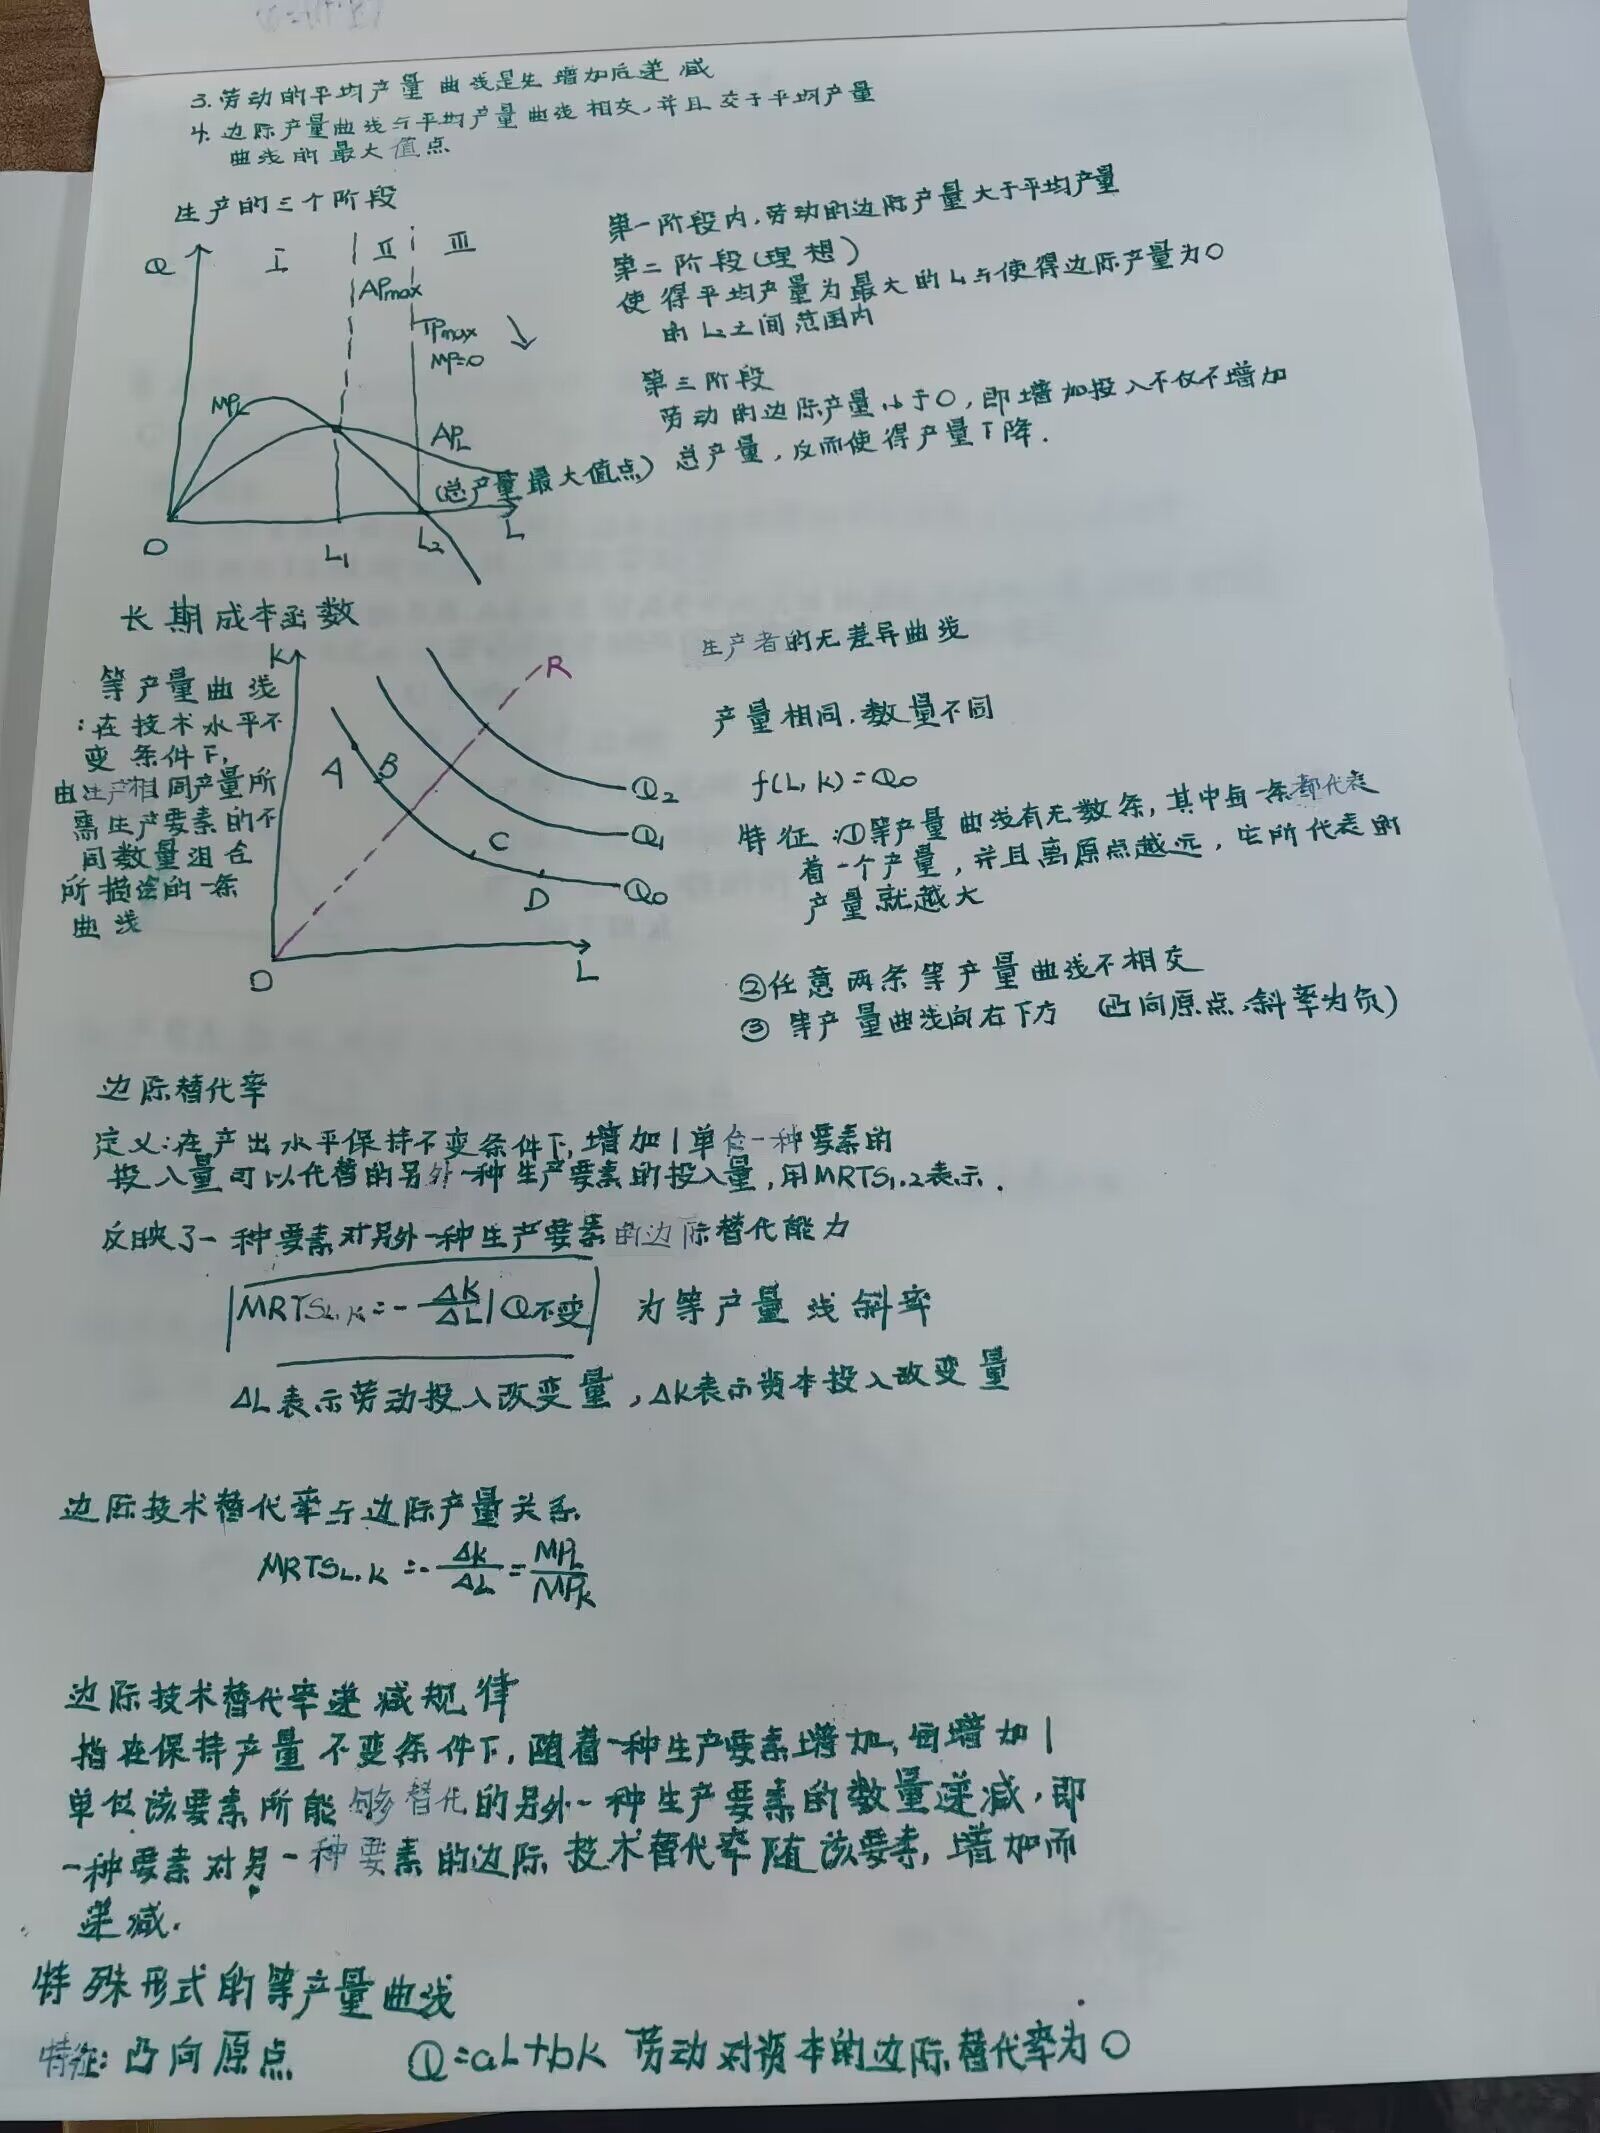 3. 劳动的平均产量曲线是先增加后递减
4. 边际产量曲线与平均产量曲线相交,并且交于平均产量
曲线的最大值点
生产的三个阶段
Q
I
II
III
APmax
TPmax
MP=0
MPL
APL
(总产量最大值点)
O
L1
L2
L
第一阶段内,劳动的边际产量大于平均产量
第二阶段(理想)
使得平均产量为最大的L1与使得边际产量为0
的L2之间范围内
第三阶段
劳动的边际产量小于0,即增加投入不仅不增加
总产量,反而使得产量下降.
长期成本函数
等产量曲线
:在技术水平不
变条件下,
由生产相同产量所
需生产要素的不
同数量组合
所描绘的一条
曲线
K
R
A
B
C
D
Q2
Q1
Q0
O
L
生产者的无差异曲线
产量相同,数量不同
f(L,K)=Q0
特征:①等产量曲线有无数条,其中每一条都代表
着一个产量,并且离原点越远,它所代表的
产量就越大
②任意两条等产量曲线不相交
③等产量曲线向右下方 (凸向原点,斜率为负)
边际替代率
定义:在产出水平保持不变条件下,增加1单位一种要素的
投入量可以代替的另外一种生产要素的投入量,用MRTS1.2表示.
反映了一种要素对另外一种生产要素的边际替代能力
MRTSL.K=-ΔK/ΔL|Q不变 为等产量线斜率
ΔL表示劳动投入改变量,ΔK表示资本投入改变量
边际技术替代率与边际产量关系
MRTSL.K=-ΔK/ΔL=MPL/MPK
边际技术替代率递减规律
指在保持产量不变条件下,随着一种生产要素增加,每增加1
单位该要素所能够替代的另外一种生产要素的数量递减,即
一种要素对另一种要素的边际技术替代率随该要素增加而
递减.
特殊形式的等产量曲线
特征:凸向原点 Q=aL+bK 劳动对资本的边际替代率为0